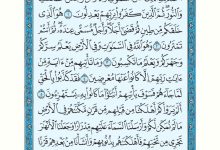 وَالنُّورَ ثُمَّ الَّذِينَ كَفَرُوا بِرَبِّهِمْ يَعْدِلُونَ ۝ هُوَ الَّذِي
خَلَقَكُم مِّن طِينٍ ثُمَّ قَضَىٰ أَجَلًا وَأَجَلٌ مُّسَمًّى عِندَهُ ثُمَّ أَنتُمْ
تَمْتَرُونَ ۝ وَهُوَ اللَّهُ فِي السَّمَاوَاتِ وَفِي الْأَرْضِ يَعْلَمُ سِرَّكُمْ
وَجَهْرَكُمْ وَيَعْلَمُ مَا تَكْسِبُونَ ۝ وَمَا تَأْتِيهِم مِّنْ ءَايَةٍ مِّنْ
ءَايَاتِ رَبِّهِمْ إِلَّا كَانُوا عَنْهَا مُعْرِضِينَ ۝ فَقَدْ كَذَّبُوا بِالْحَقِّ
لَمَّا جَاءَهُمْ فَسَوْفَ يَأْتِيهِمْ أَنبَاءُ مَا كَانُوا بِهِ يَسْتَهْزِءُونَ ۝
أَلَمْ يَرَوْا كَمْ أَهْلَكْنَا مِن قَبْلِهِم مِّن قَرْنٍ مَّكَّنَّاهُمْ فِي الْأَرْضِ
مَا لَمْ نُمَكِّن لَّكُمْ وَأَرْسَلْنَا السَّمَاءَ عَلَيْهِم مِّدْرَارًا وَجَعَلْنَا الْأَنْهَارَ
تَجْرِي مِن تَحْتِهِمْ فَأَهْلَكْنَاهُم بِذُنُوبِهِمْ وَأَنشَأْنَا مِن بَعْدِهِمْ قَرْنًا